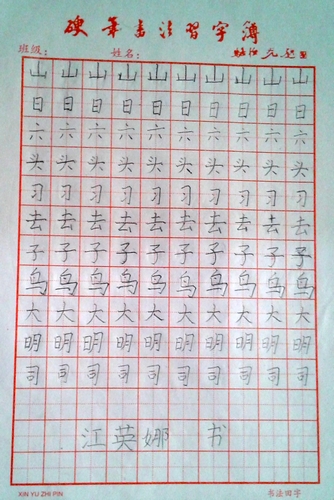 硬笔书法習字簿
班级： 姓名：
山山山山山山山山山山
日日日日日日日日日日
六六六六六六六六六六
头头头头头头头头头头
习习习习习习习习习习
去去去去去去去去去去
子子子子子子子子子子
鸟鸟鸟鸟鸟鸟鸟鸟鸟鸟
大大大大大大大大大大
明明明明明明明明明明
司司司司司司司司司司
江英娜 书
XIN YU ZHI PIN 书法田字